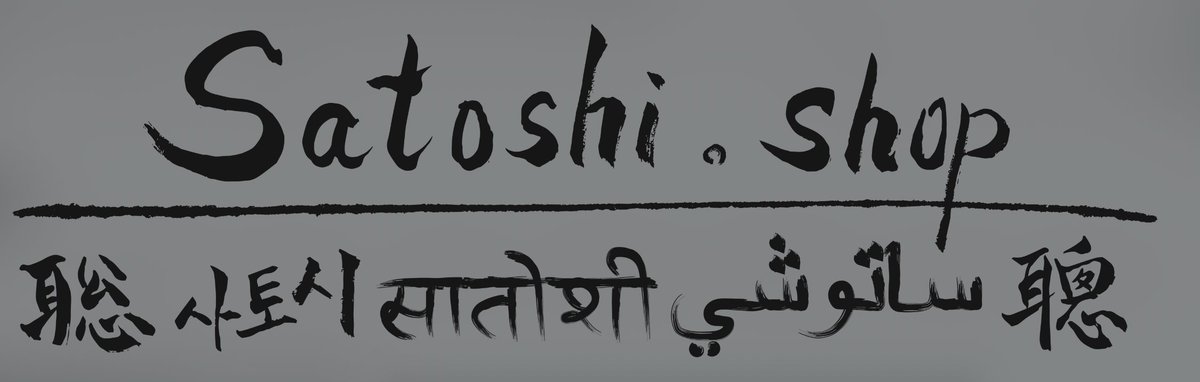 Satoshi.shop
聡 사토시 सातोशी ساتوشي 聰